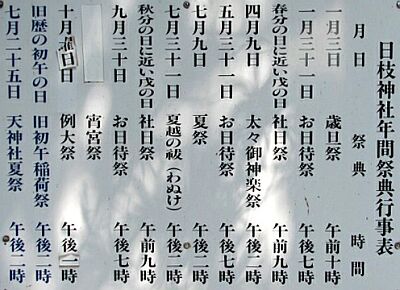 日枝神社年間祭典行事表
月日 祭典 時間
一月三日 歳旦祭 午前十時
一月三十一日 お日待祭 午後七時
春分の日に近い戊の日 社日祭 午前九時
四月九日 太々御神楽祭 午後二時
五月三十一日 お日待祭 午後七時
七月九日 夏祭 午後二時
七月三十一日 夏越の祓(わぬけ) 午後二時
秋分の日に近い戊の日 社日祭 午前九時
九月三十日 お日待祭 午後七時
宵宮祭
十月 日 例大祭 午後二時
旧歴の初午の日 旧初午稲荷祭 午後二時
七月二十五日 天神社夏祭 午後二時